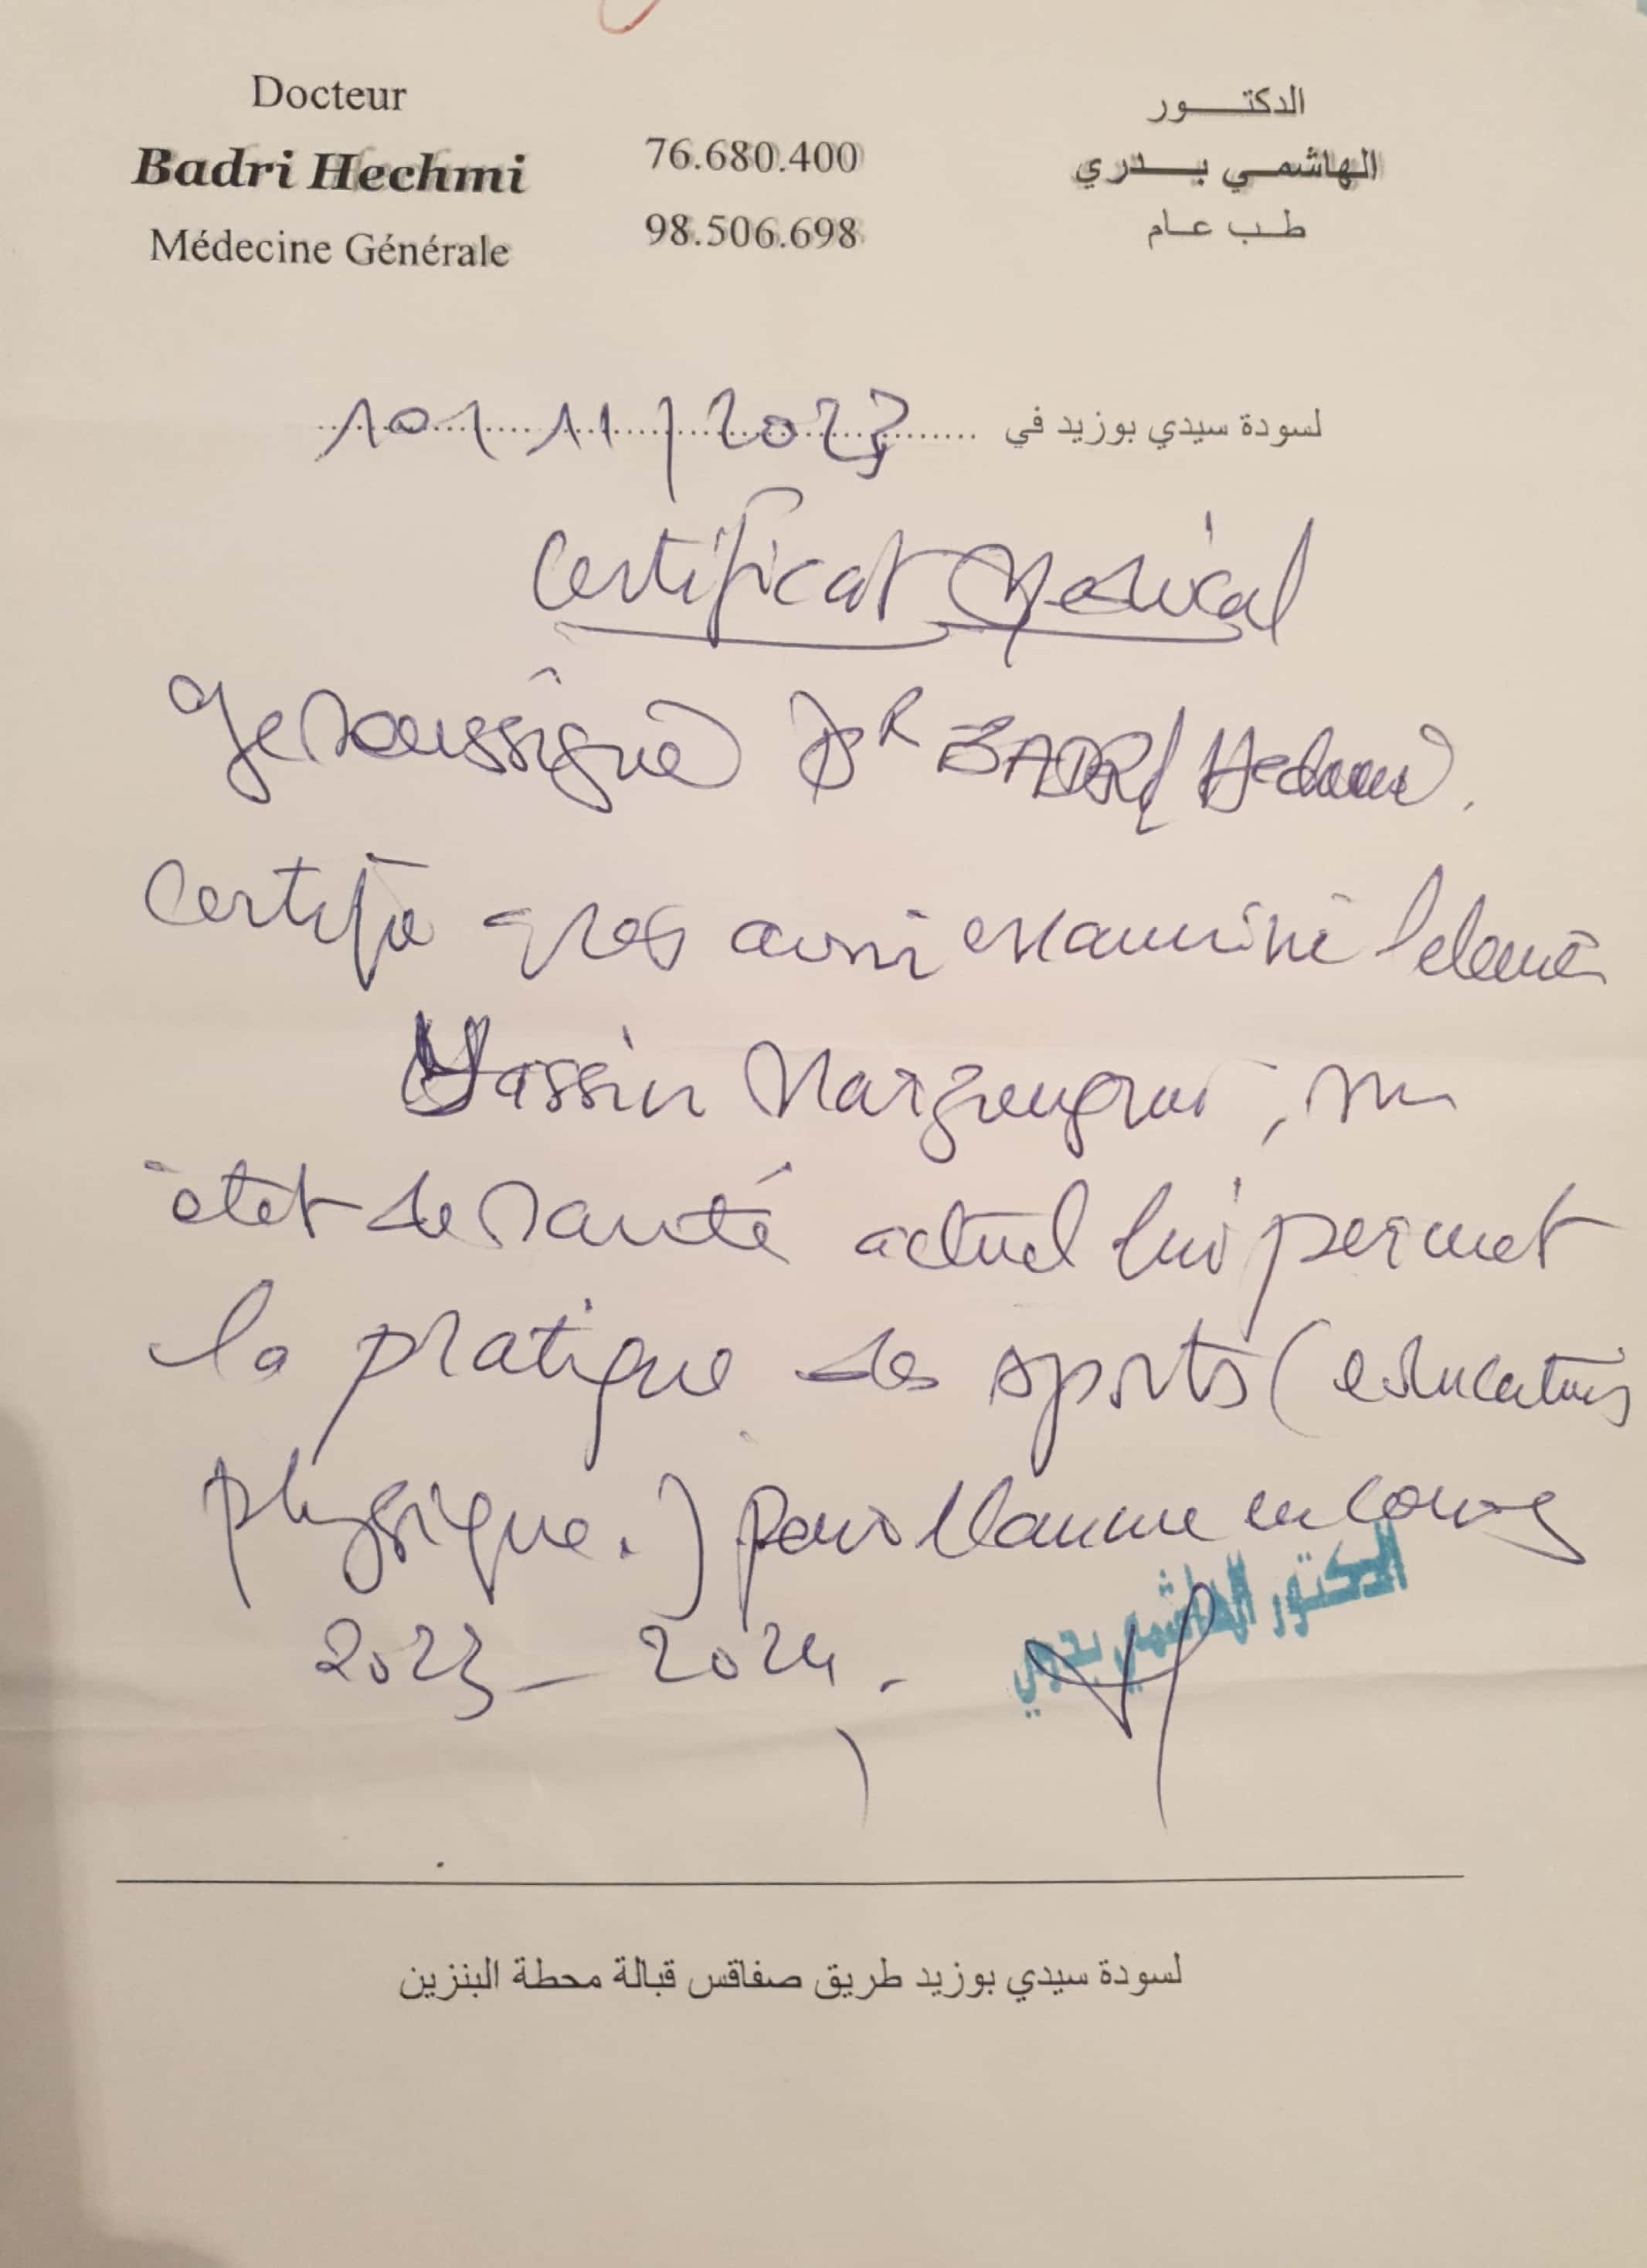 Docteur
Badri Hechmi
Médecine Générale
76.680.400
98.506.698
الدكتـــور
الهاشمـي بـــدري
طـب عـام
لسودة سيدي بوزيد في 10/11/2023
Certificat Medical
Je soussigné DR BADRI Hechmi.
Certifie avoir examiné
Yassin, son
état de santé actuel lui permet
la pratique des sports (education
physique.) pour l'année en cours
2023-2024.
الدكتور الهاشمي بدري
لسودة سيدي بوزيد طريق صفاقس قبالة محطة البنزين